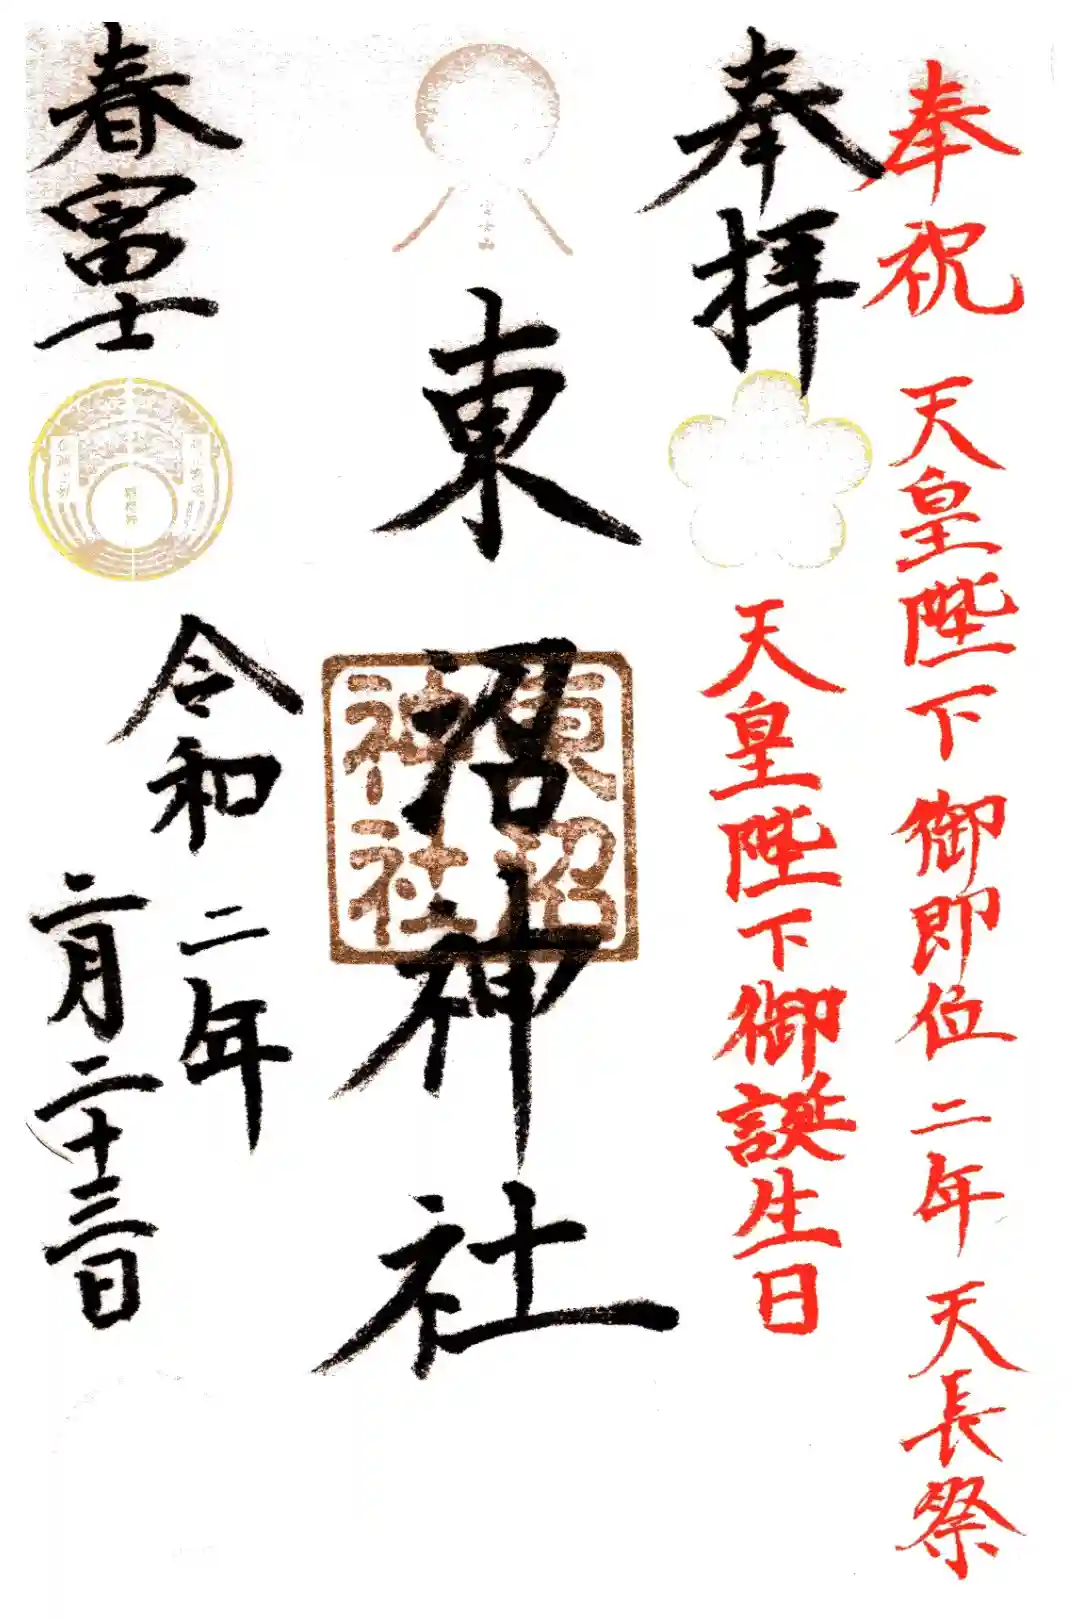 奉祝 天皇陛下 御即位 二年 天長祭
奉拝
天皇陛下御誕生日
東沼神社
東沼
神社
春富士
令和二年
二月二十三日